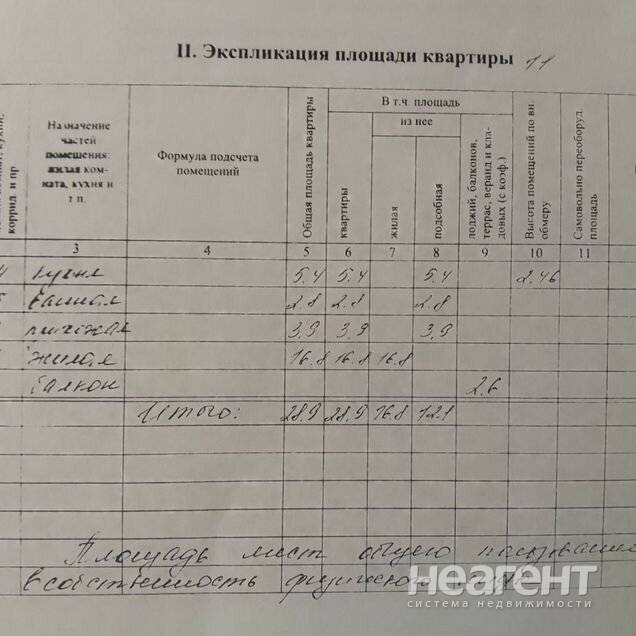 II. Экспликация площади квартиры 11
коррид. и пр
Назначение
частей
помещения:
жилая ком-
ната, кухня и
т п.
Формула подсчета
помещений
Общая площадь квартиры
В т.ч. площадь
из нее
квартиры
жилая
подсобная
лоджий, балконов,
террас, веранд и кла-
довых (с коэф.)
Высота помещений по вн
обмеру
Самовольно переоборуд.
площадь
3 4 5 6 7 8 9 10 11
кухня 5.4 5.4 5.4 2.46
ванная 2.8 2.8 2.8
прихожая 3,9 3,9 3,9
жилая 16.8 16.8 16.8
балкон 2.6
Итого: 28.9 28,9 16.8 12.1
Площадь мест общего
в собственность физического
неагент
система недвижимости